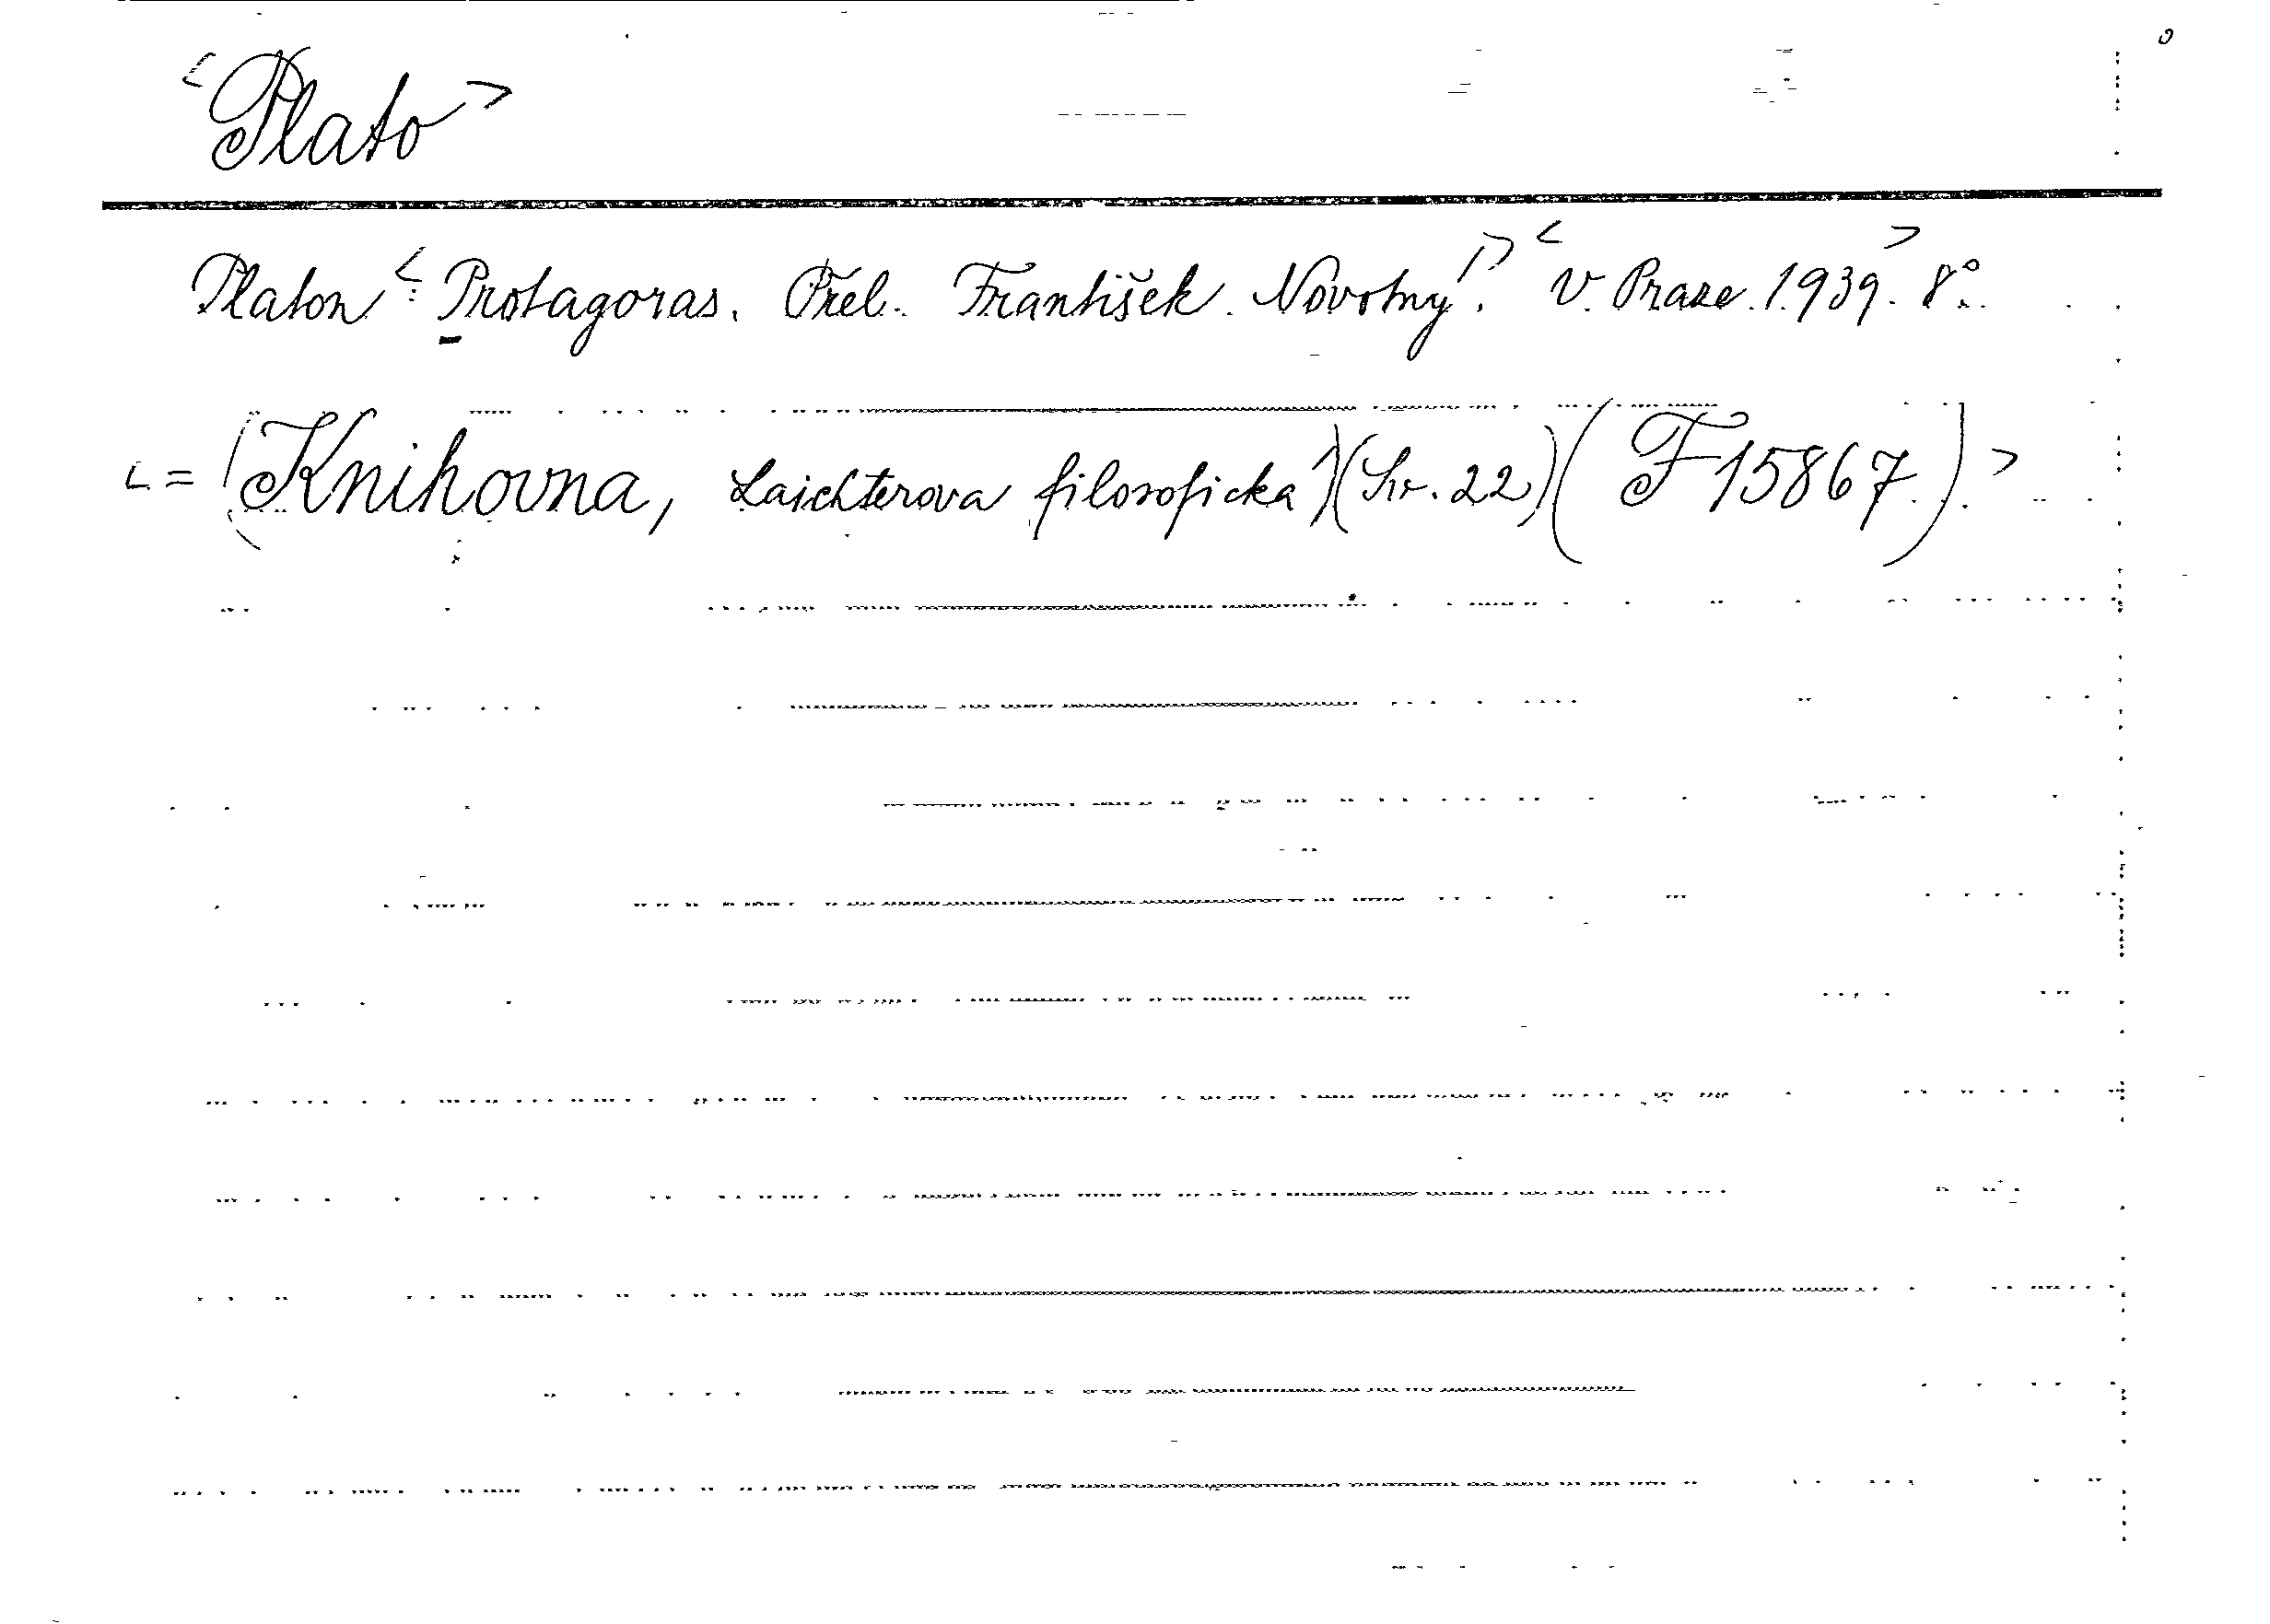 <Plato>
Platon <: Protagoras. Přel. František Novotný.> <V Praze 1939.> 8°.
<= (Knihovna, Laichterova filosofická)(Sv. 22)(F 15867.).>